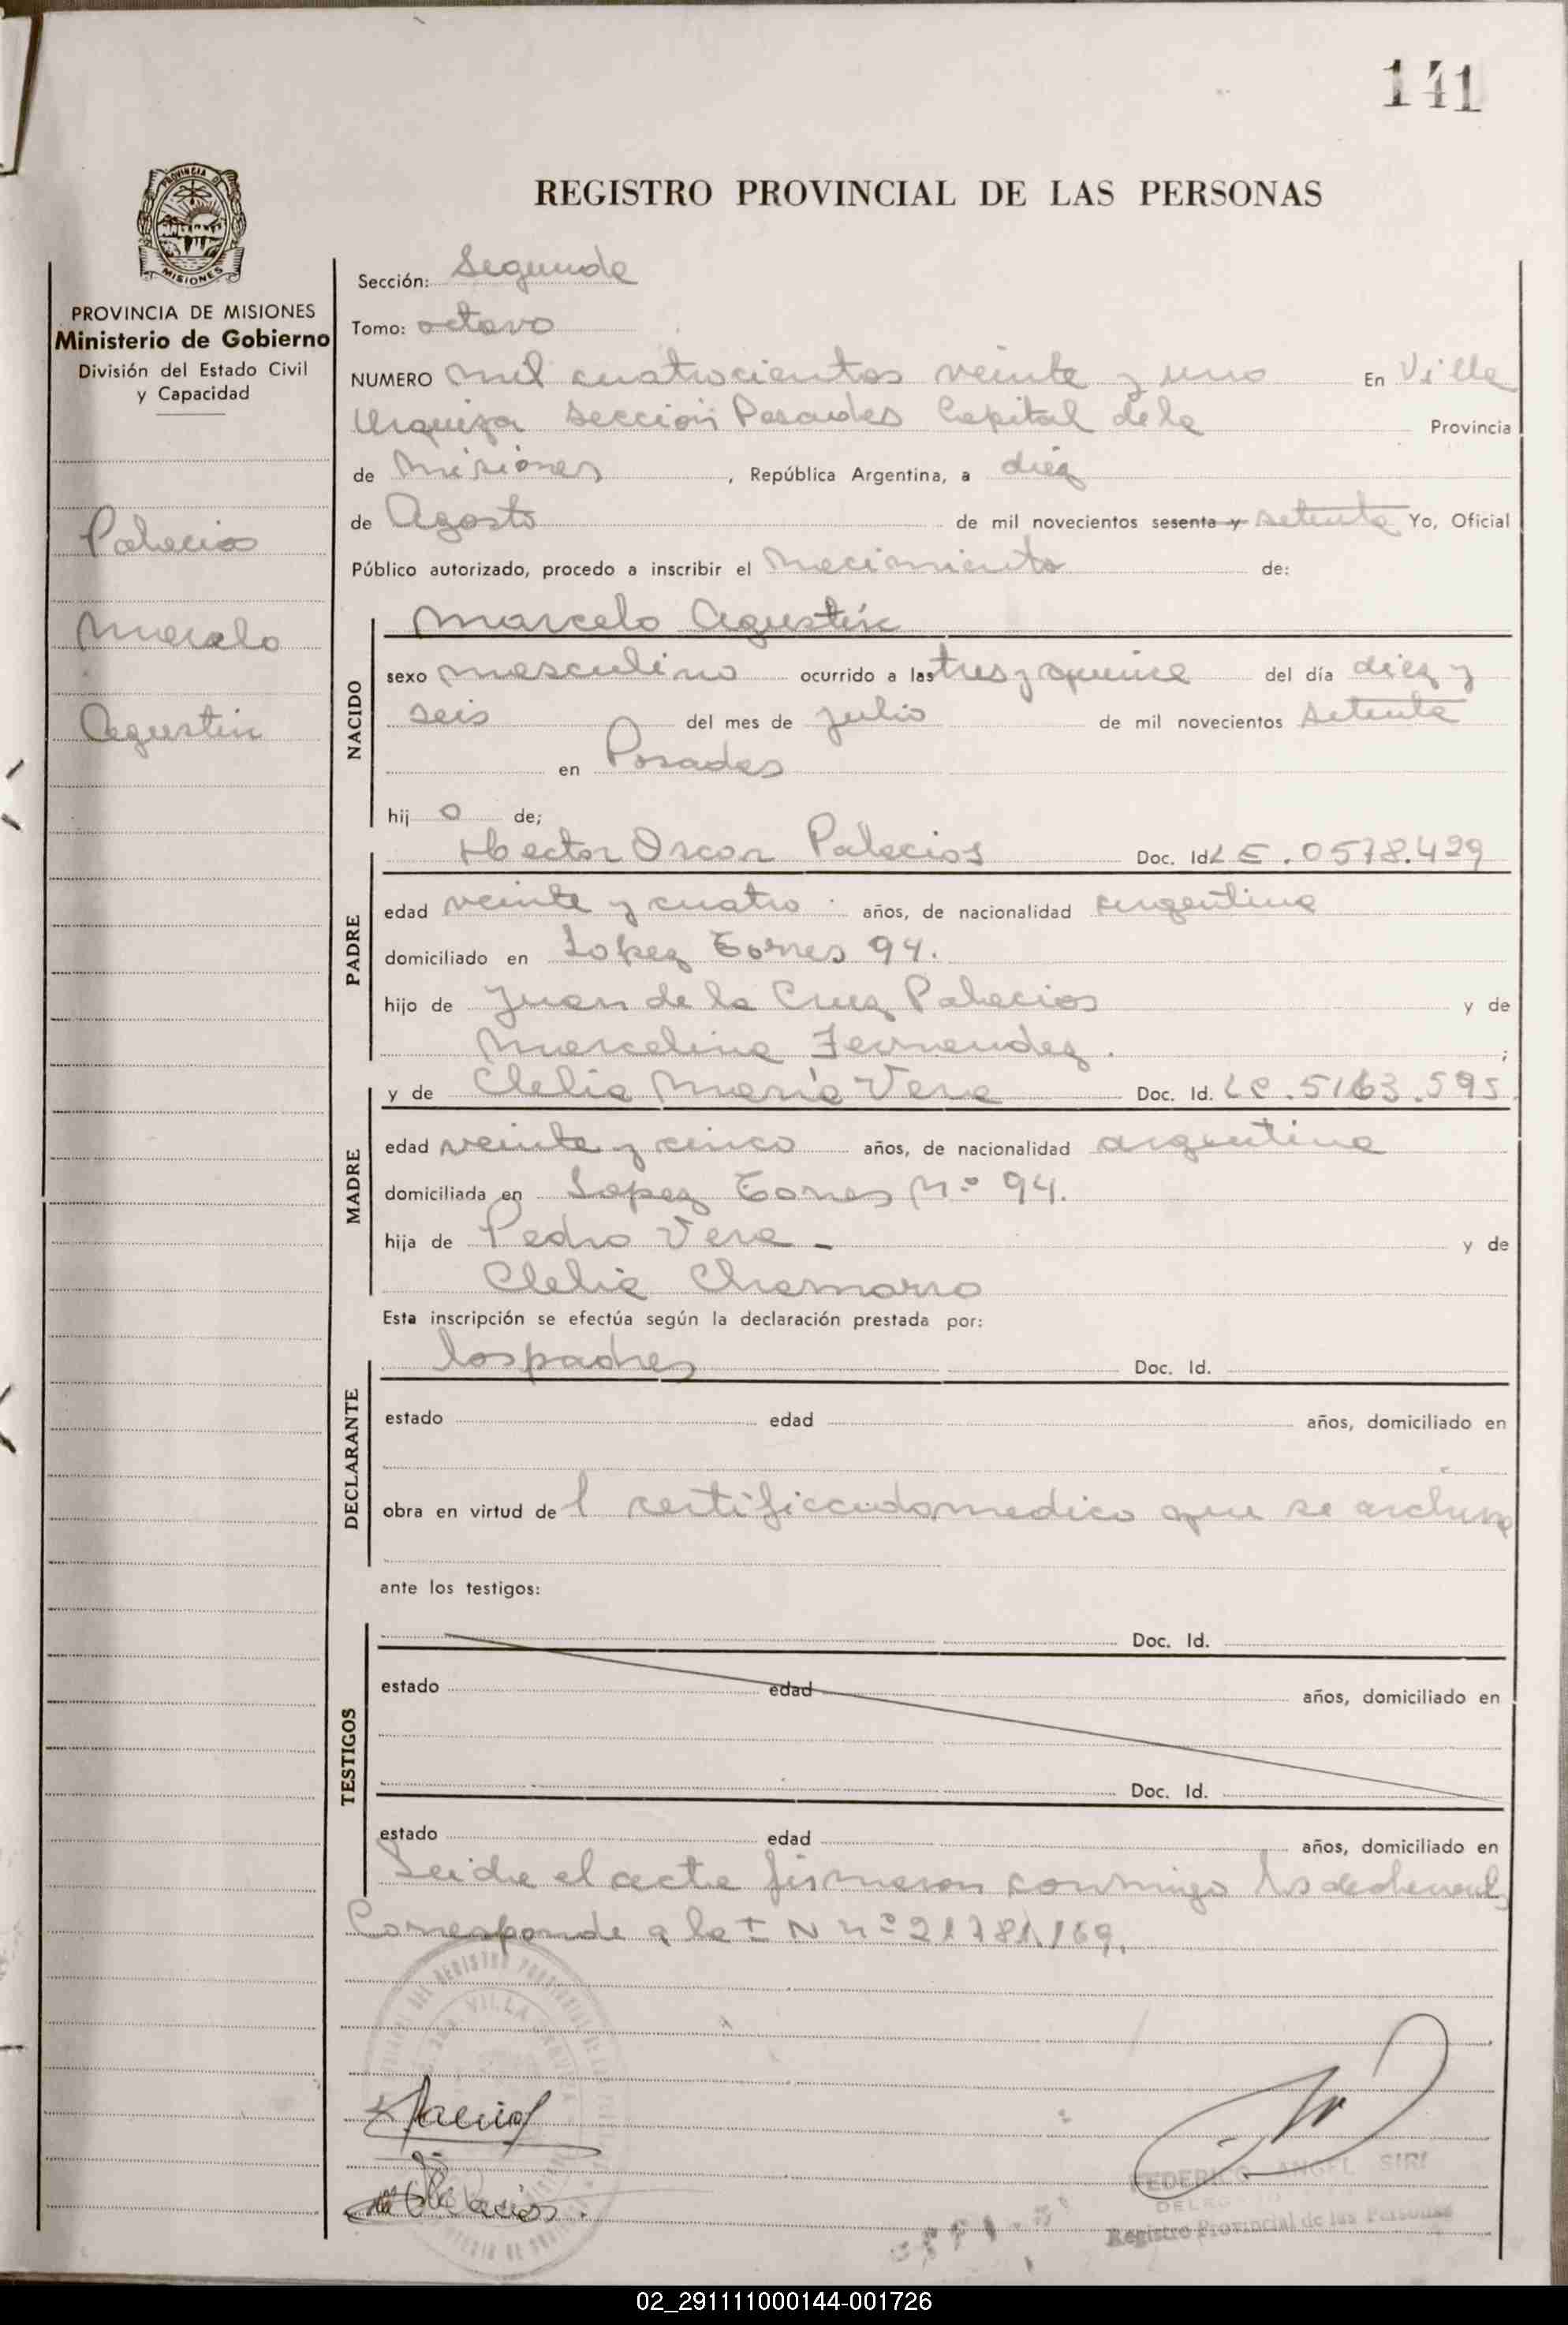 141
REGISTRO PROVINCIAL DE LAS PERSONAS
PROVINCIA DE MISIONES
Ministerio de Gobierno
División del Estado Civil
y Capacidad
Palacios
Marcelo
Agustín
Sección: Segunda
Tomo: octavo
NUMERO mil cuatrocientos veinte y uno En Villa
Urquiza Sección Posadas Capital de la Provincia
de Misiones, República Argentina, a diez
de Agosto de mil novecientos sesenta y setenta Yo, Oficial
Público autorizado, procedo a inscribir el nacimiento de:
NACIDO
Marcelo Agustín
sexo masculino ocurrido a las tres y quince del día diez y
seis del mes de julio de mil novecientos setenta
en Posadas
hij o de;
PADRE
Hector Oscar Palacios Doc. Id. L E. 0578.429
edad veinte y cuatro años, de nacionalidad argentina
domiciliado en Lopez Torres 94.
hijo de Juan de la Cruz Palacios y de
Marcelina Fernandez. ;
MADRE
y de Clelia María Vera Doc. Id. LC. 5163.595
edad veinte y cinco años, de nacionalidad argentina
domiciliada en Lopez Torres Nº 94.
hija de Pedro Vera - y de
Clelia Chamorro
Esta inscripción se efectúa según la declaración prestada por:
DECLARANTE
los padres Doc. Id.
estado edad años, domiciliado en
obra en virtud de l certificado medico que se archiva
ante los testigos:
TESTIGOS
Doc. Id.
estado edad años, domiciliado en
Doc. Id.
estado edad años, domiciliado en
Leida el acta firmaron conmigo los
Corresponde a la I N nº 21781.169.
Palacios.
FEDERICO ANGEL SIRI
Registro Provincial de las Personas
02_291111000144-001726